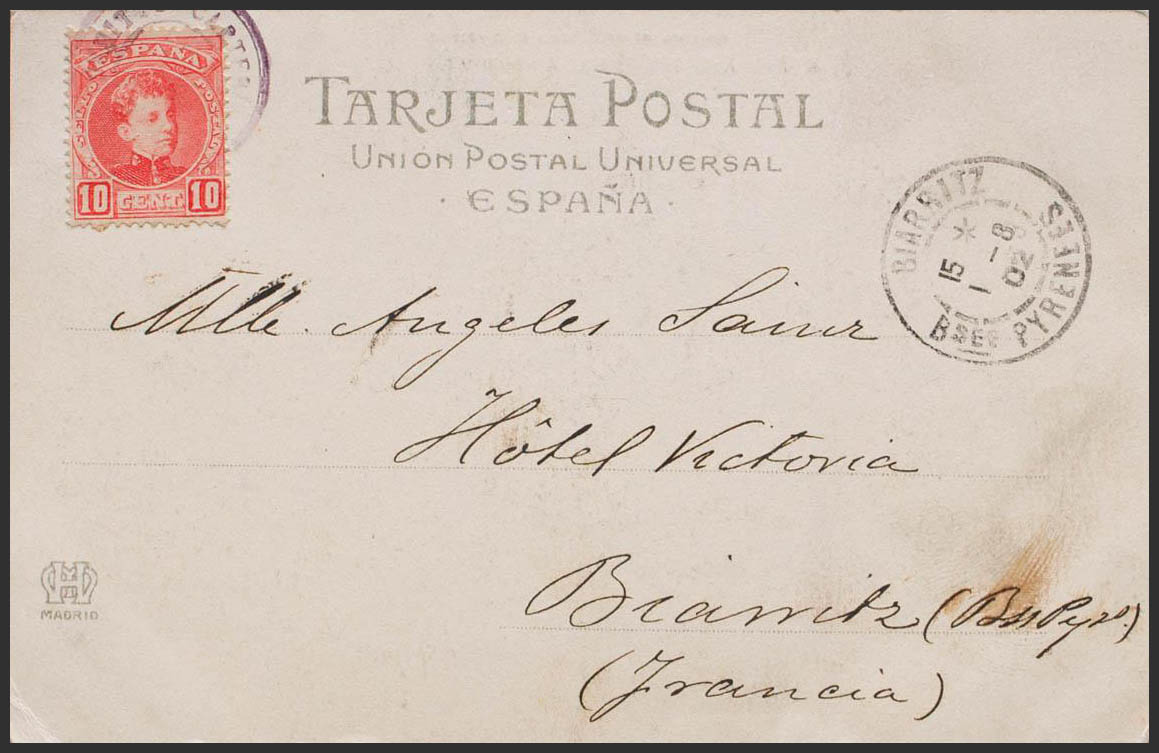 ESPAÑA
SELLO POSTAL
10 CENT. 10
TARJETA POSTAL
UNIÓN POSTAL UNIVERSAL
· ESPAÑA ·
BIARRITZ
15 1 - 8 02
BSES PYRENEES
Mlle. Angeles Sainz
Hôtel Victoria
Biarritz (Bss Pyrs.)
(Francia)
MADRID